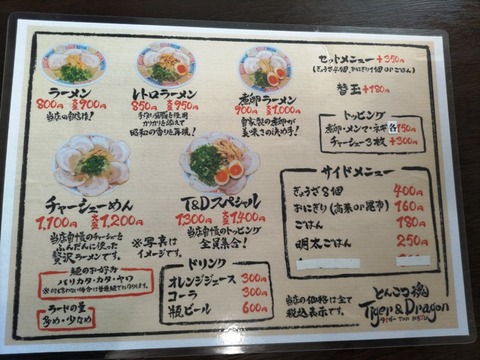 ラーメン
800円 大盛900円
当店の自信作!
レトロラーメン
850円 大盛950円
手作り背脂を使用
カリカリを添えて
昭和の香りを再現!
煮卵ラーメン
900円 大盛1,000円
自家製の煮卵が
美味さの決め手!
セットメニュー +350円
(ぎょうざ4個、おにぎり1個 or ごはん)
替玉 +180円
トッピング
煮卵・メンマ・ネギ 各150円
チャーシュー3枚 +300円
チャーシューめん
1,100円 大盛1,200円
当店自慢のチャーシューを
ふんだんに使った
贅沢ラーメンです。
T&Dスペシャル
1300円 大盛1,400円
当店自慢のトッピング
全員集合!
※写真は
イメージです。
サイドメニュー
ぎょうざ8個 400円
おにぎり(高菜or昆布) 160円
ごはん 180円
明太ごはん 250円
麺のお好み
バリカタ・カタ・ヤワ
ラードの量
多め・少なめ
ドリンク
オレンジジュース 300円
コーラ 300円
瓶ビール 600円
当店の価格は全て
税込表示です。
とんこつ魂
Tiger&Dragon